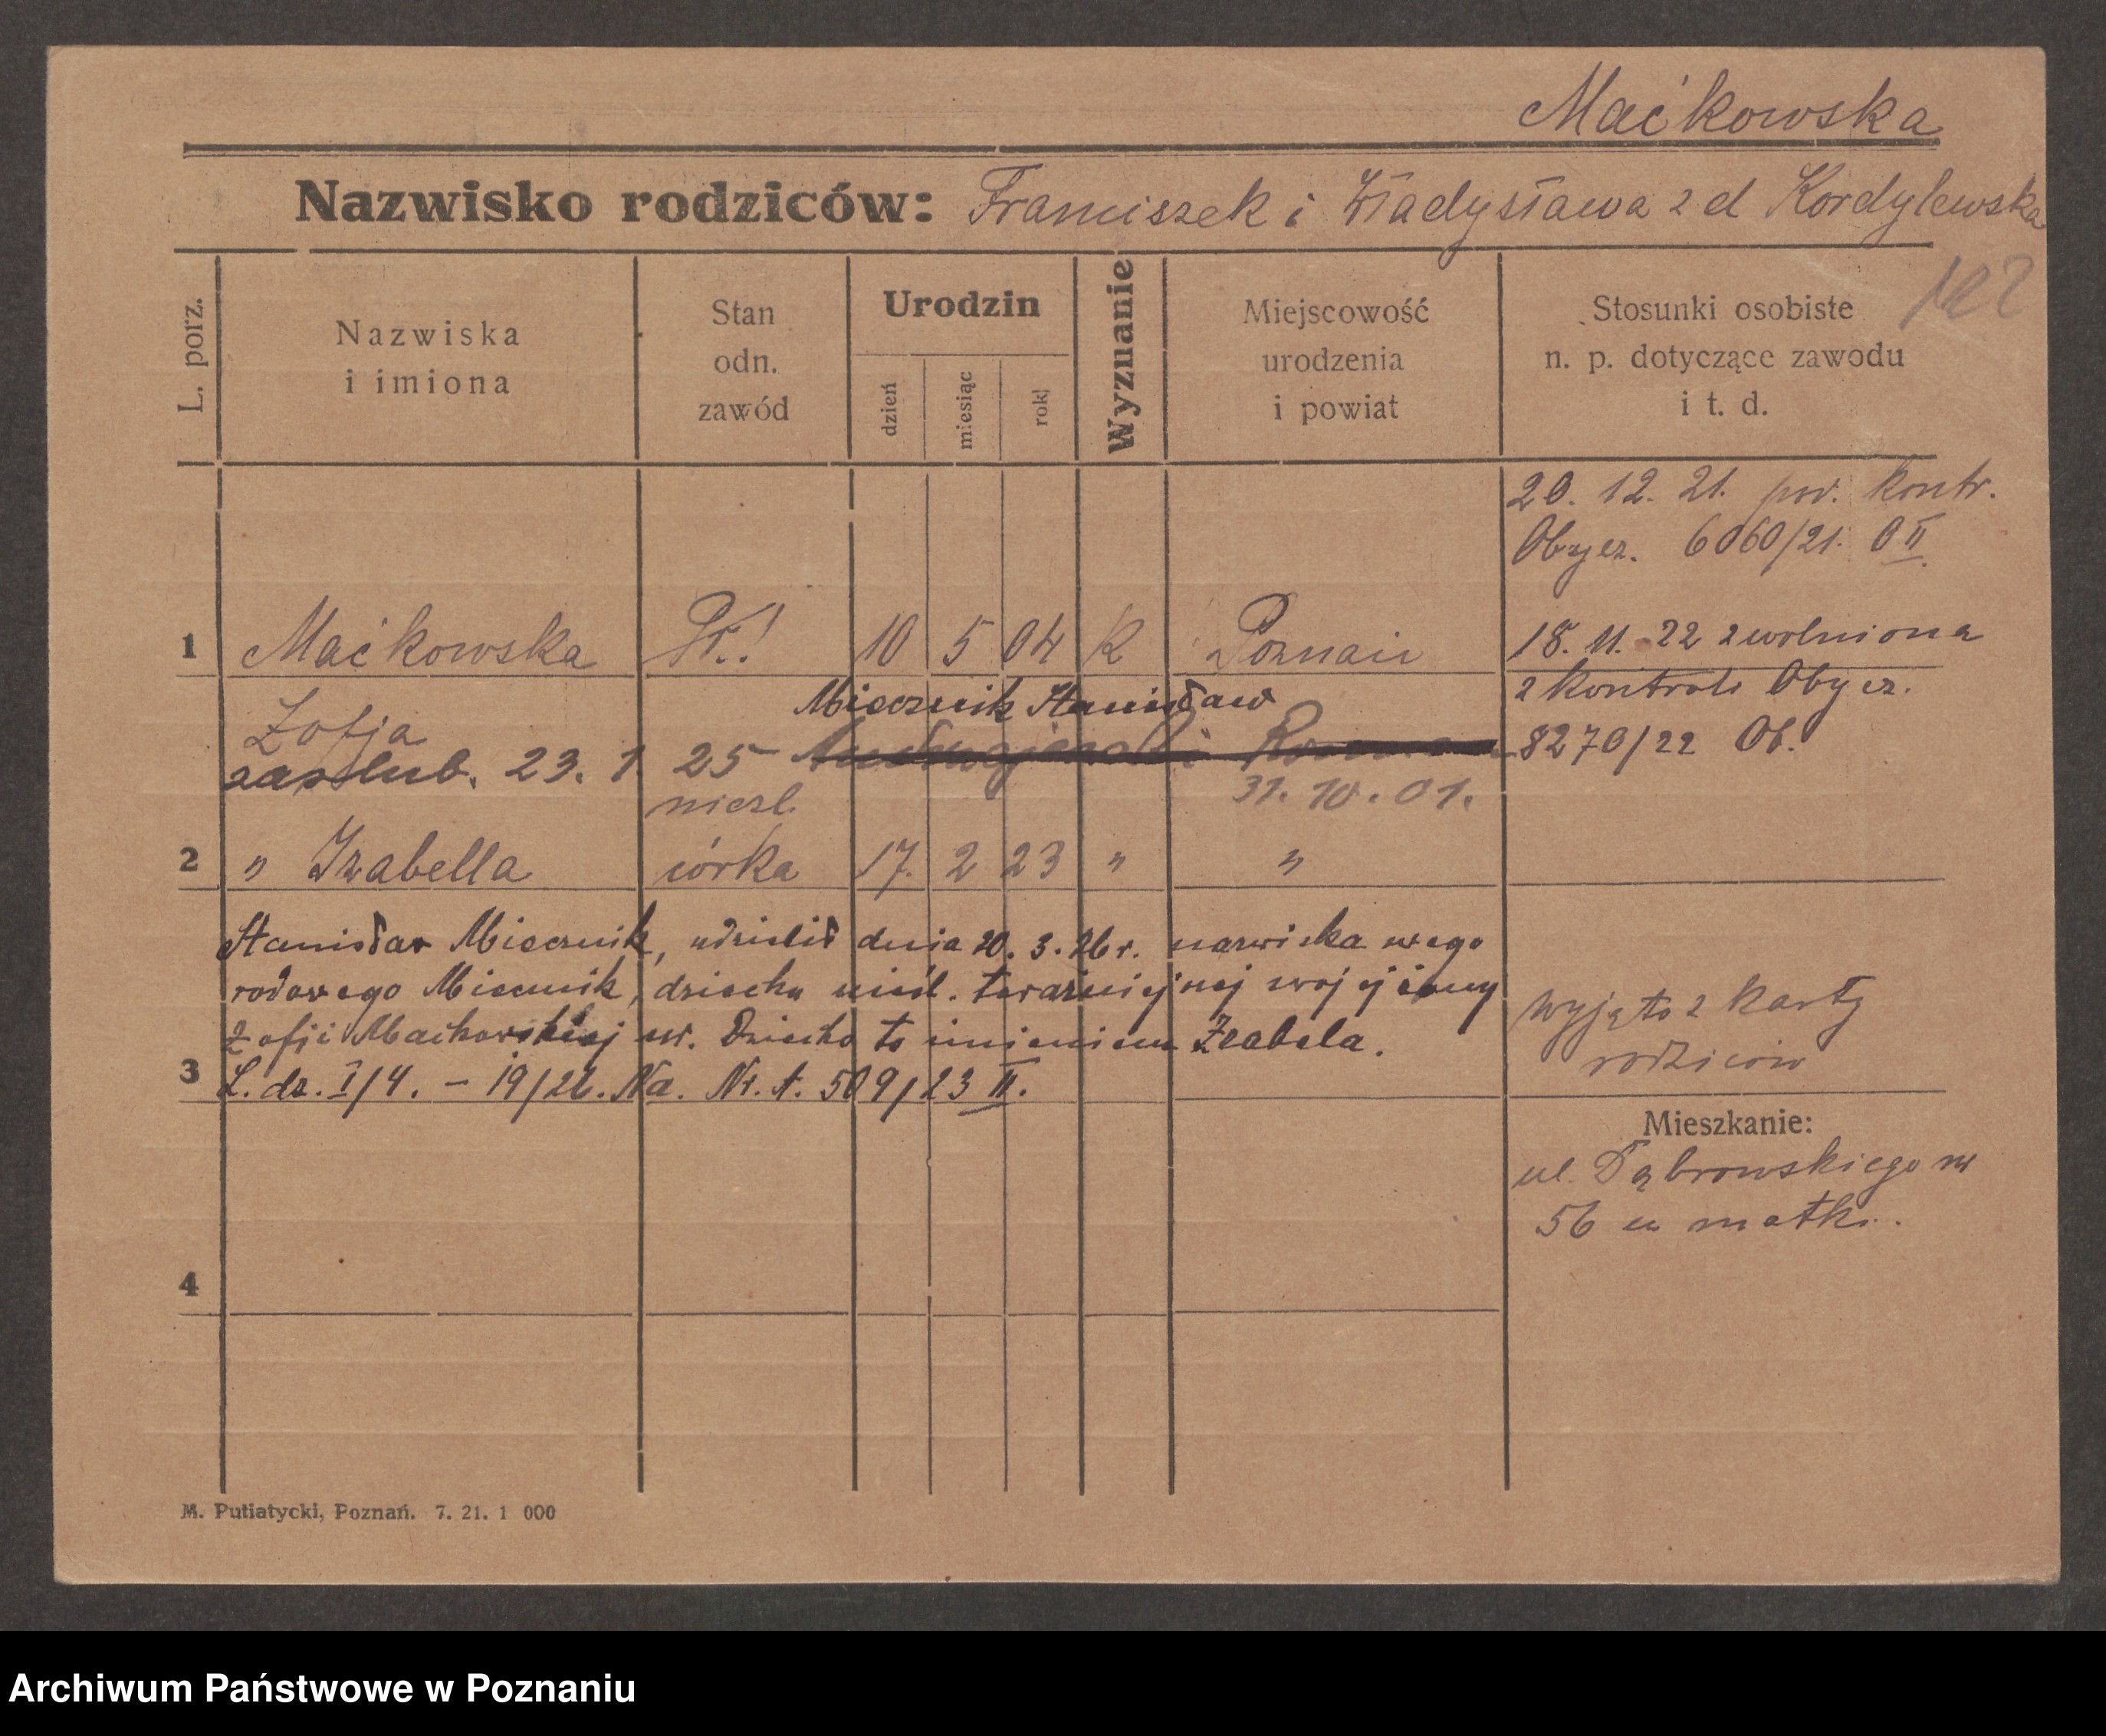 Maćkowska
Nazwisko rodziców: Franciszek i Władysława z d Kordylewska
L. porz.
Nazwiska
i imiona
Stan
odn.
zawód
Urodzin
dzień
miesiąc
rok
Wyznanie
Miejscowość
urodzenia
i powiat
Stosunki osobiste
n. p. dotyczące zawodu
i t. d.
20. 12. 21. pod. kontr.
Obycz. 6060/21. O II.
1 Maćkowska Pr.! 10 5 04 K Poznań
18. 11. 22 zwolniona
z kontroli Obycz.
8270/22 Ob.
Zofja
Miecznik Stanisław
zaślub. 23. 1. 25
31. 10. 01.
nieśl.
2 " Izabella córka 17. 2 23 " "
Stanisław Miecznik, udzielił dnia 20. 3. 26 r. nazwiska swego
rodowego Miecznik, dziecku nieśl. teraźniejszej swojej żony
Zofji Maćkowskiej ur. Dziecko to imieniem Izabela.
3 L. dz. I/4. – 19/26. Na. Nr. A. 509/23 II.
wyjęto z karty
rodziców
Mieszkanie:
ul. Dąbrowskiego nr
56 u matki.
4
M. Putiatycki, Poznań. 7. 21. 1 000
Archiwum Państwowe w Poznaniu